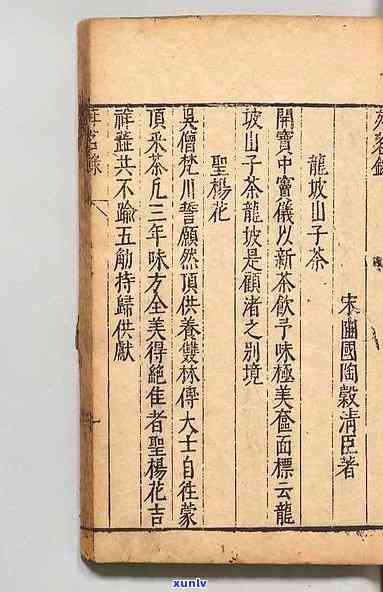 茗錄
宋豳國陶穀清臣著
龍坡山子茶
開寶中竇儀以新茶飲予味極美奩面標云龍
坡山子茶龍坡是顧渚之別境
聖楊花
吳僧梵川誓願然頂供養雙林傅大士自往蒙
頂采茶凡三年味方全美得絕佳者聖楊花吉
祥蕋共不踰五觔持歸供獻
茗錄
xunlv